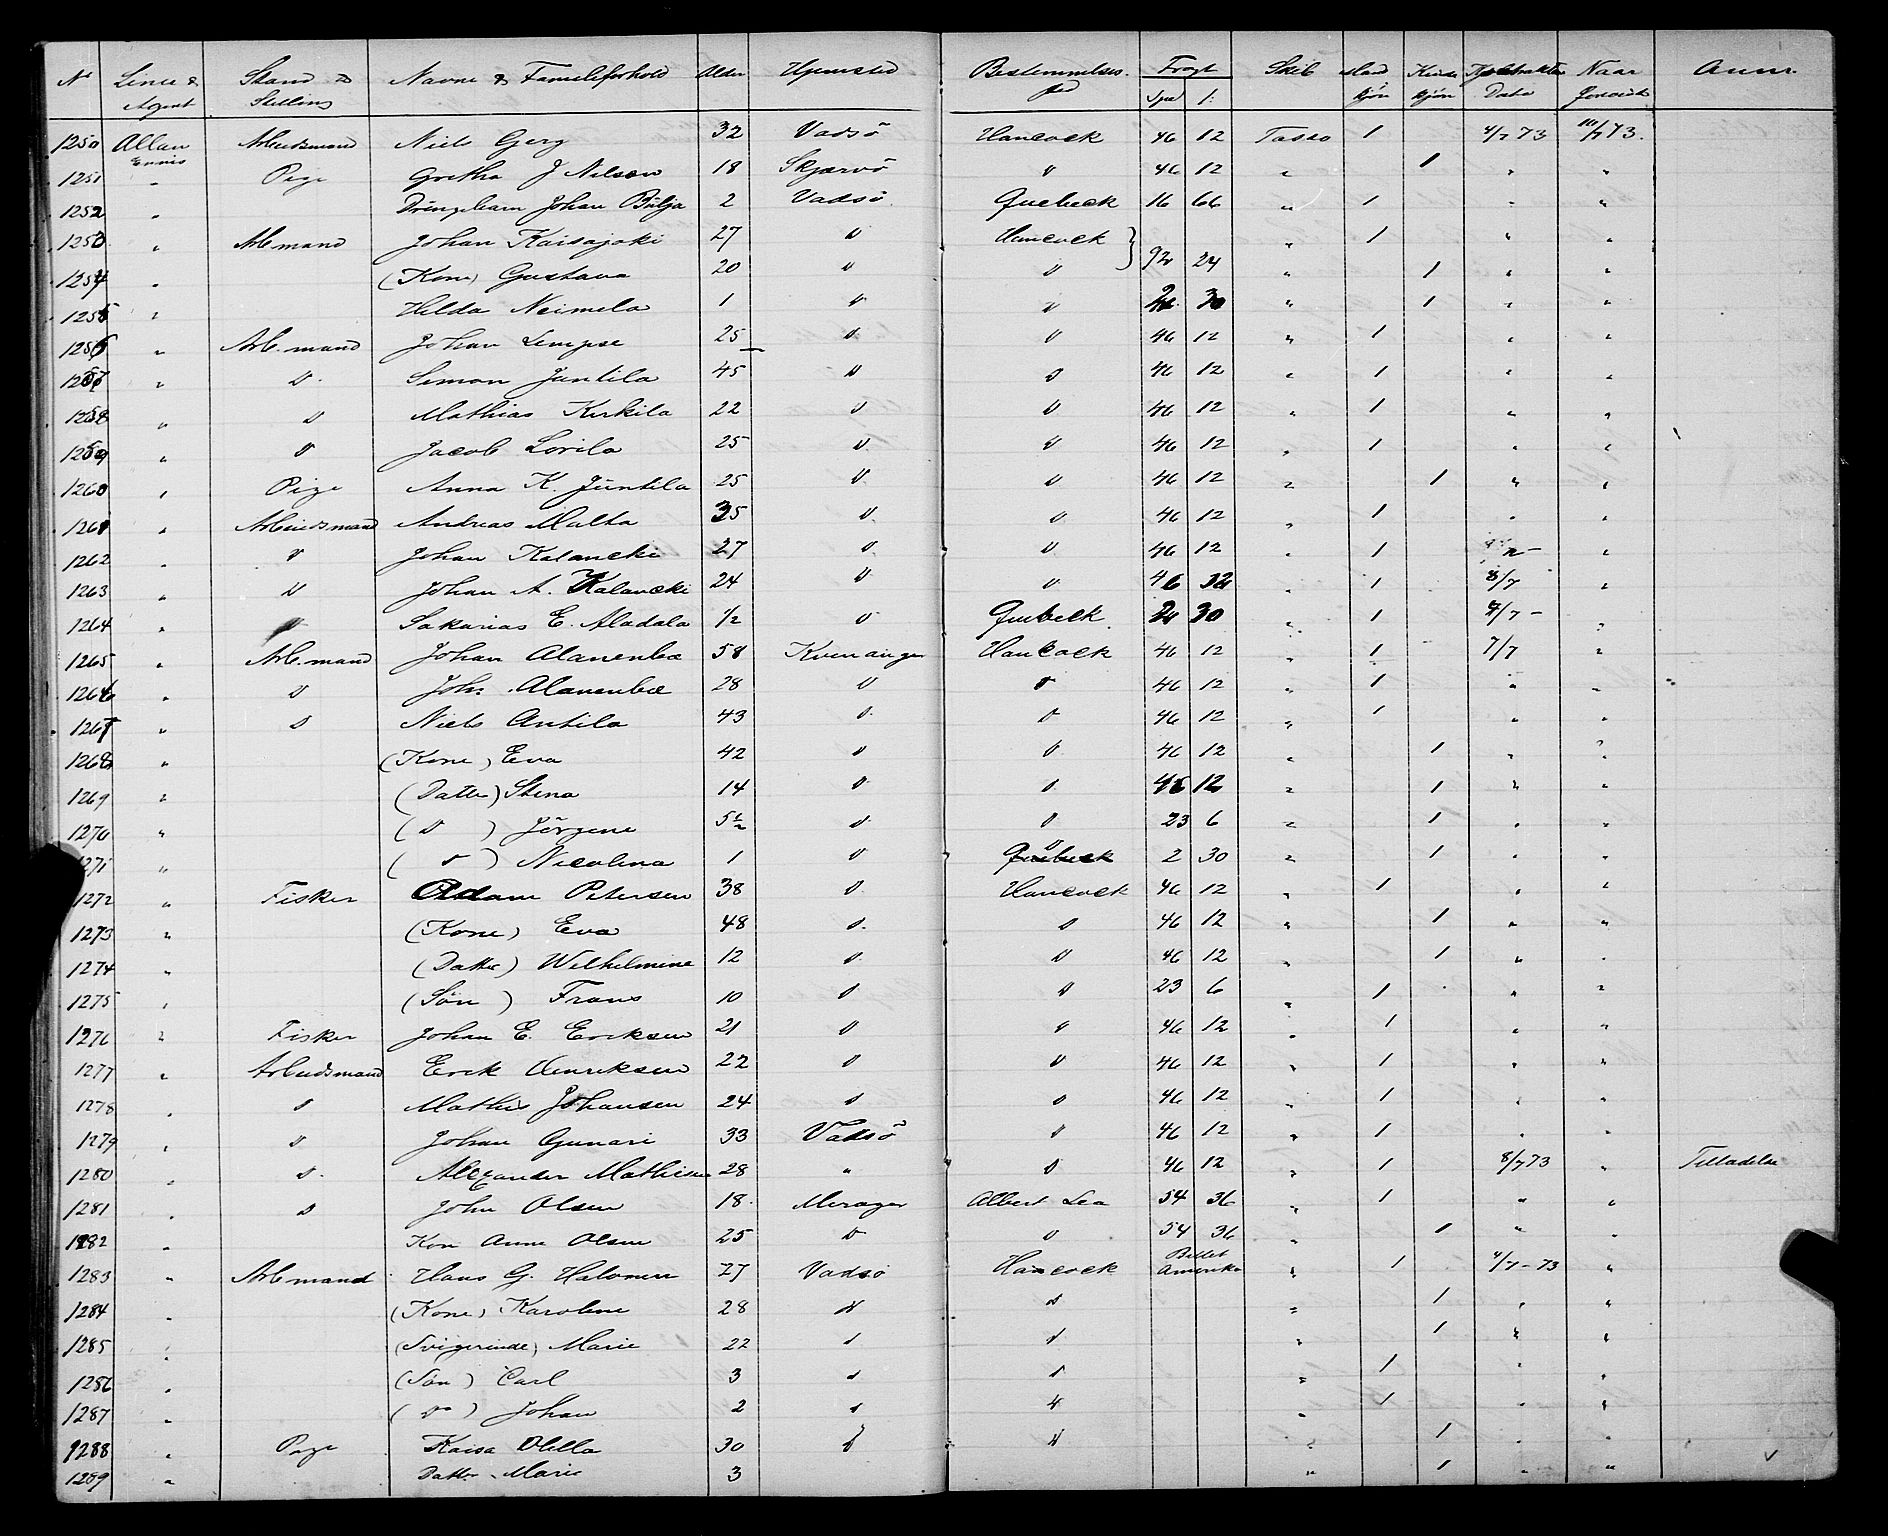 No Linie & Agent Stand & Stilling Navne & Familieforhold Alder Hjemsted Bestemmelses sted Fragt Spd ß: Skib Mand kjön Kvinde kjön Kontrakter Date Naar Anm.
1250 Allan Ennis Arbeidsmand Niels Gerg 32 Vadsö Hancock 46 12 Tasso 1 4/7 73 10/7 73.
1251 " Pige Gretha J Nilsen 18 Skjærvö " 46 12 " 1 " "
1252 " Drengebarn Johan Bilja 2 Vadsö Quebeck 16 66 " 1 " "
1253 " Arb mand Johan Kaisajoki 27 " Hancock } " 1 " "
1254 " (Kone) Gustava 20 " " 92 24 " 1 " "
1255 " Hilda Neimela 1 " " 2 30 " 1 " "
1256 " Arb. mand Johan Lempse 25 " " 46 12 " 1 " "
1257 " " Simon Juntila 45 " " 46 12 " 1 " "
1258 " " Mathias Kirkila 22 " " 46 12 " 1 " "
1259 " " Jacob Lorila 25 " " 46 12 " 1 " "
1260 " Pige Anna K. Juntila 25 " " 46 12 " 1 " "
1261 " Arbeidsmand Andreas Malta 35 " " 46 12 " 1 " "
1262 " " Johan Kalancki 27 " " 46 12 " 1 "
1263 " " Johan A. Kalancki 24 " " 46 32 " 1 8/7 "
1264 " " Sakarias E. Aladala 1/2 " Quebeck 2 30 " 1 4/7 - "
1265 " Arb. mand Johan Alanenbæ 58 Kvenangen Hancock 46 12 " 1 7/7 "
1266 " " Joh. Alanenbæ 28 " " 46 12 " 1 " "
1267 " " Niels Antila 43 " " 46 12 " 1 " "
1268 " (Kone) Eva 42 " " 46 12 " 1 " "
1269 " (Datter) Stina 14 " " 46 12 " 1 " "
1270 " ( " ) Jörgine 5 1/2 " " 23 6 " 1 " "
1271 " ( " ) Nicolina 1 " Quebeck 2 30 " 1 " "
1272 " Fisker Adam Petersen 38 " Hancock 46 12 " 1 " "
1273 " (Kone) Eva 48 " " 46 12 " 1 " "
1274 " (Datter) Wilhelmine 12 " " 46 12 " 1 " "
1275 " (Sön) Frans 10 " " 23 6 " 1 " "
1276 " Fisker Johan E. Eriksen 21 " " 46 12 " 1 " "
1277 " Arbeidsmand Erik Henriksen 22 " " 46 12 " 1 " "
1278 " " Mathis Johansen 24 " " 46 12 " 1 " "
1279 " " Johan Gunari 33 Vadsö " 46 12 " 1 " "
1280 " " Alexander Mathisen 28 " " 46 12 " 1 8/7 73 " Tilladelse
1281 " " John Olsen 18 Merager Albert Lea 54 36 " 1 " "
1282 " Kon Anne Olsen 25 " " 54 36 " 1 " "
1283 " Arb mand Hans G. Halonen 27 Vadsö Hancock Billet Amerika " 1 4/7 - 73 "
1284 " (Kone) Karoline 28 " " " 1 " "
1285 " (Svigerinde) Marie 22 " " " 1 " "
1286 " (Sön) Carl 3 " " " 1 " "
1287 " ( do ) Johan 2 " " " 1 " "
1288 " Pige Kaisa Olilla 30 " " " 1 " "
1289 " Datter Marie 3 " 1 " "